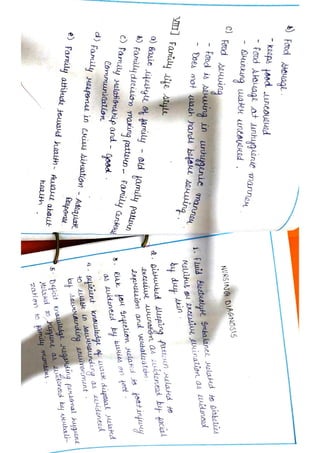 b) Food storage
- keeps food uncovered
- Food storage at unhygienic manner
- Drinking water uncovered.
c) Food serving
- Food is serving in unhygienic manner
- Does not wash hands before serving.
VIII] Family life style
a) Basic lifestyle of family - old family pattern
b) Family decision making pattern - Family centered
c) Family relationship and - Good.
Communication
d) Family response in crisis situation - Adequate
response
e) Family attitude toward health - Aware about
health.
NURSING DIAGNOSIS
1. Fluid electrolyte imbalance related to diabetes
mellitus or excessive urination as evidenced
by dry skin.
2. Disturbed sleeping pattern related to
excessive urination as evidenced by facial
expression and verbalization
3. Risk for infection related to foot injury
as evidenced by
4. deficient knowledge of waste disposal related
to surrounding as evidenced
by surrounding environment.
5. Deficit knowledge regarding personal hygiene
related to hygiene as evidenced by verbali-
zation to family members